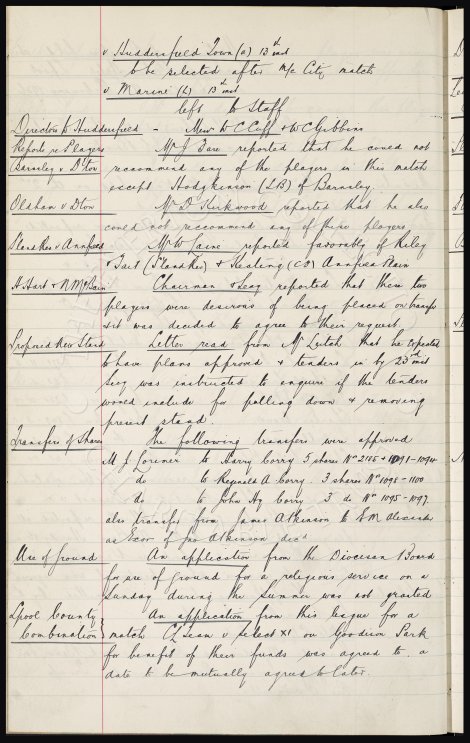 v Huddersfield Town (a) 13th inst
to be selected after M/c City match
v Marine (L) 13th inst
left to Staff
Directors to Huddersfield - Messrs W C Cuff & W C Gibbins
Reports re Players Mr J Fare reported that he could not
Barnsley v D'ton recommend any of the players in this match
except Hodgkinson (LB) of Barnsley.
Oldham v Dton Mr D Kirkwood reported that he also
could not recommend any of these players
Mr W reported favorably of Kelsy
& Tait & Keating (CF) Annfield Plain
H Hart & N McBain Chairman & Secy reported that these two
players were desirous of being placed on transfer
& it was decided to agree to their request.
Proposed New Stand Letter read from Mr Leitch that he expected
to have plans approved & tenders in by 23rd inst
Secy was instructed to enquire if the tenders
would include for pulling down & removing
present stand.
Transfers of Shares The following transfers were approved
M J Lorimer to Harry Corry 5 shares No 2185 & 1091-1094
do to Reginald A Corry. 3 shares No 1098-1100
do to John Hy Corry 3 do No 1095-1097.
also transfer from James Atkinson to S M Alexander
as exor of Jas Atkinson decd
Use of Ground An application from the Diocesan Board
for use of ground for a religious service on a
Sunday during the summer was not granted
Lpool County An application from this league for a
Combination match CL Team v Select XI on Goodison Park
for benefit of their funds was agreed to. a
date to be mutually agreed to later.